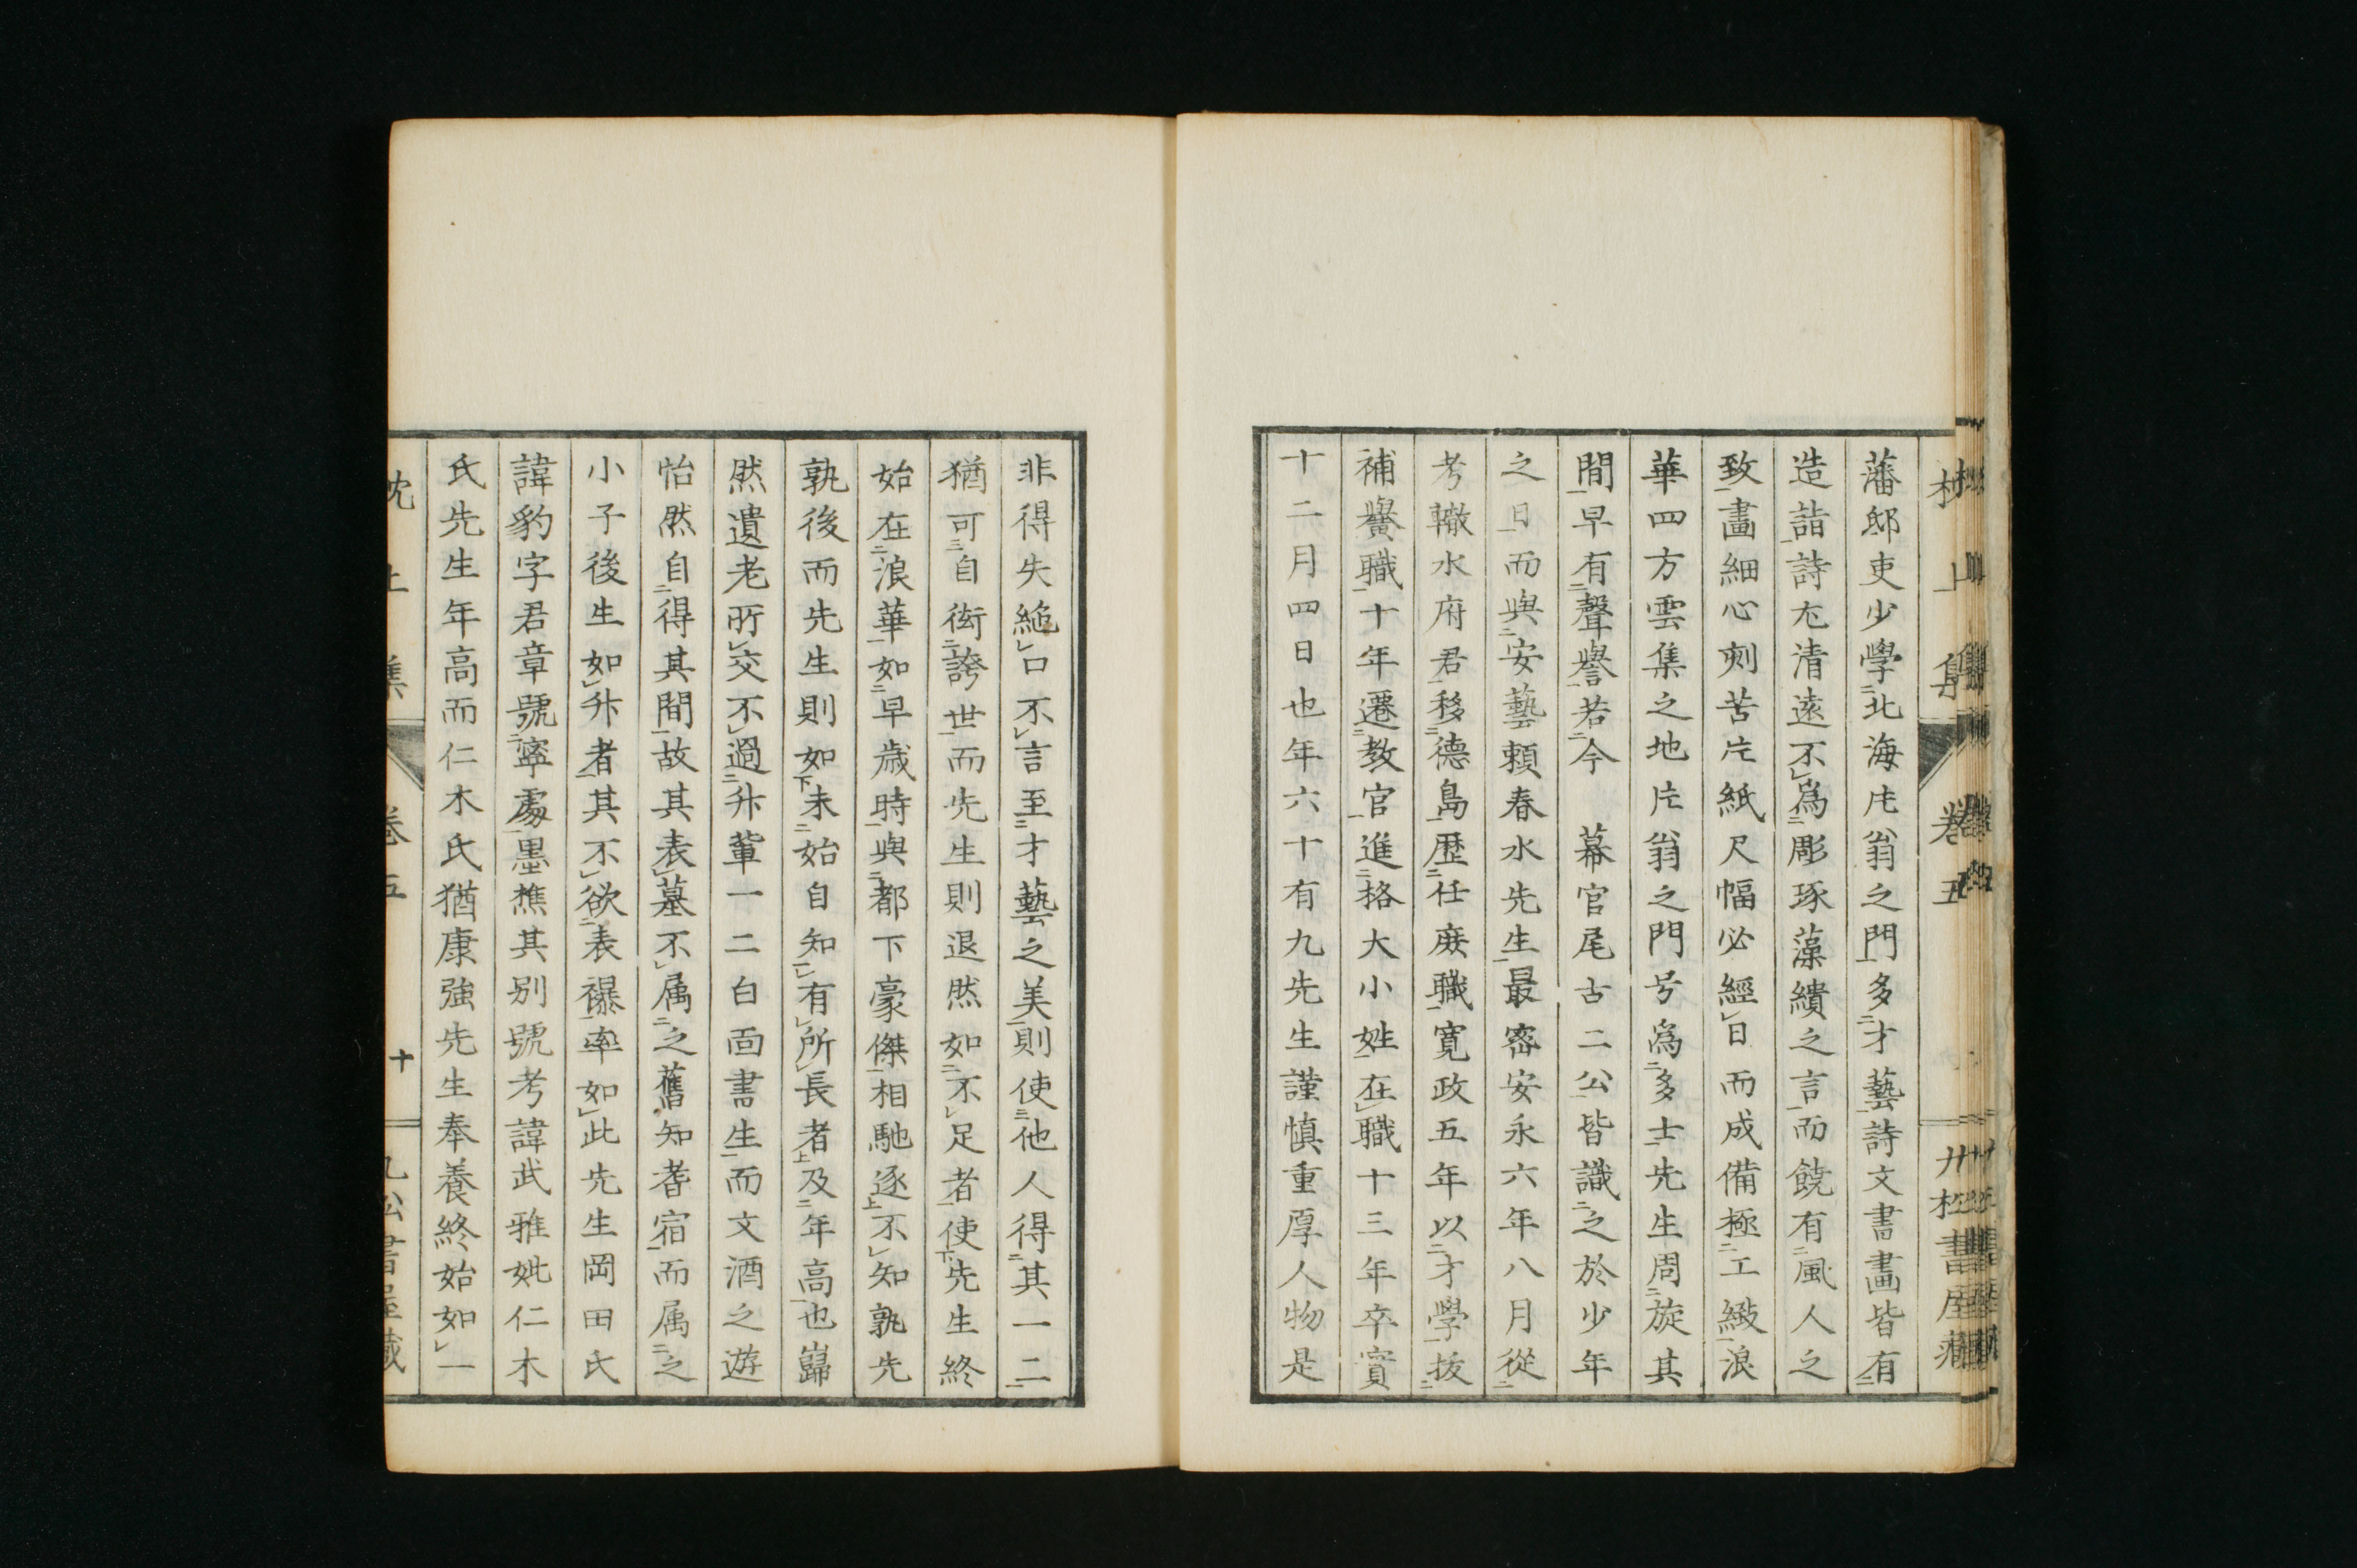 藩邸吏少學北海片翁之門多才藝詩文書畫皆有
造詣詩尤清遠不爲彫琢藻繢之言而饒有風人之
致畫細心刻苦片紙尺幅必經日而成備極工緻浪
華四方雲集之地片翁之門号爲多士先生周旋其
間早有聲譽若今　幕官尾古二公皆識之於少年
之日而與安藝賴春水先生最密安永六年八月從
考轍水府君移德島歴任庶職寛政五年以才學拔
補黌職十年遷教官進格大小姓在職十三年卒實
十二月四日也年六十有九先生謹慎重厚人物是
非得失絶口不言至才藝之美則使他人得其一二
猶可自衒誇世而先生則退然如不足者使先生終
始在浪華如早歳時與都下豪傑相馳逐不知孰先
孰後而先生則如未始自知有所長者及年高也巋
然遺老所交不過升輩一二白面書生而文酒之遊
怡然自得其間故其表墓不属之舊知耆宿而属之
小子後生如升者其不欲表襮率如此先生岡田氏
諱豹字君章號寧處墨樵其别號考諱武雅妣仁木
氏先生年高而仁木氏猶康強先生奉養終始如一